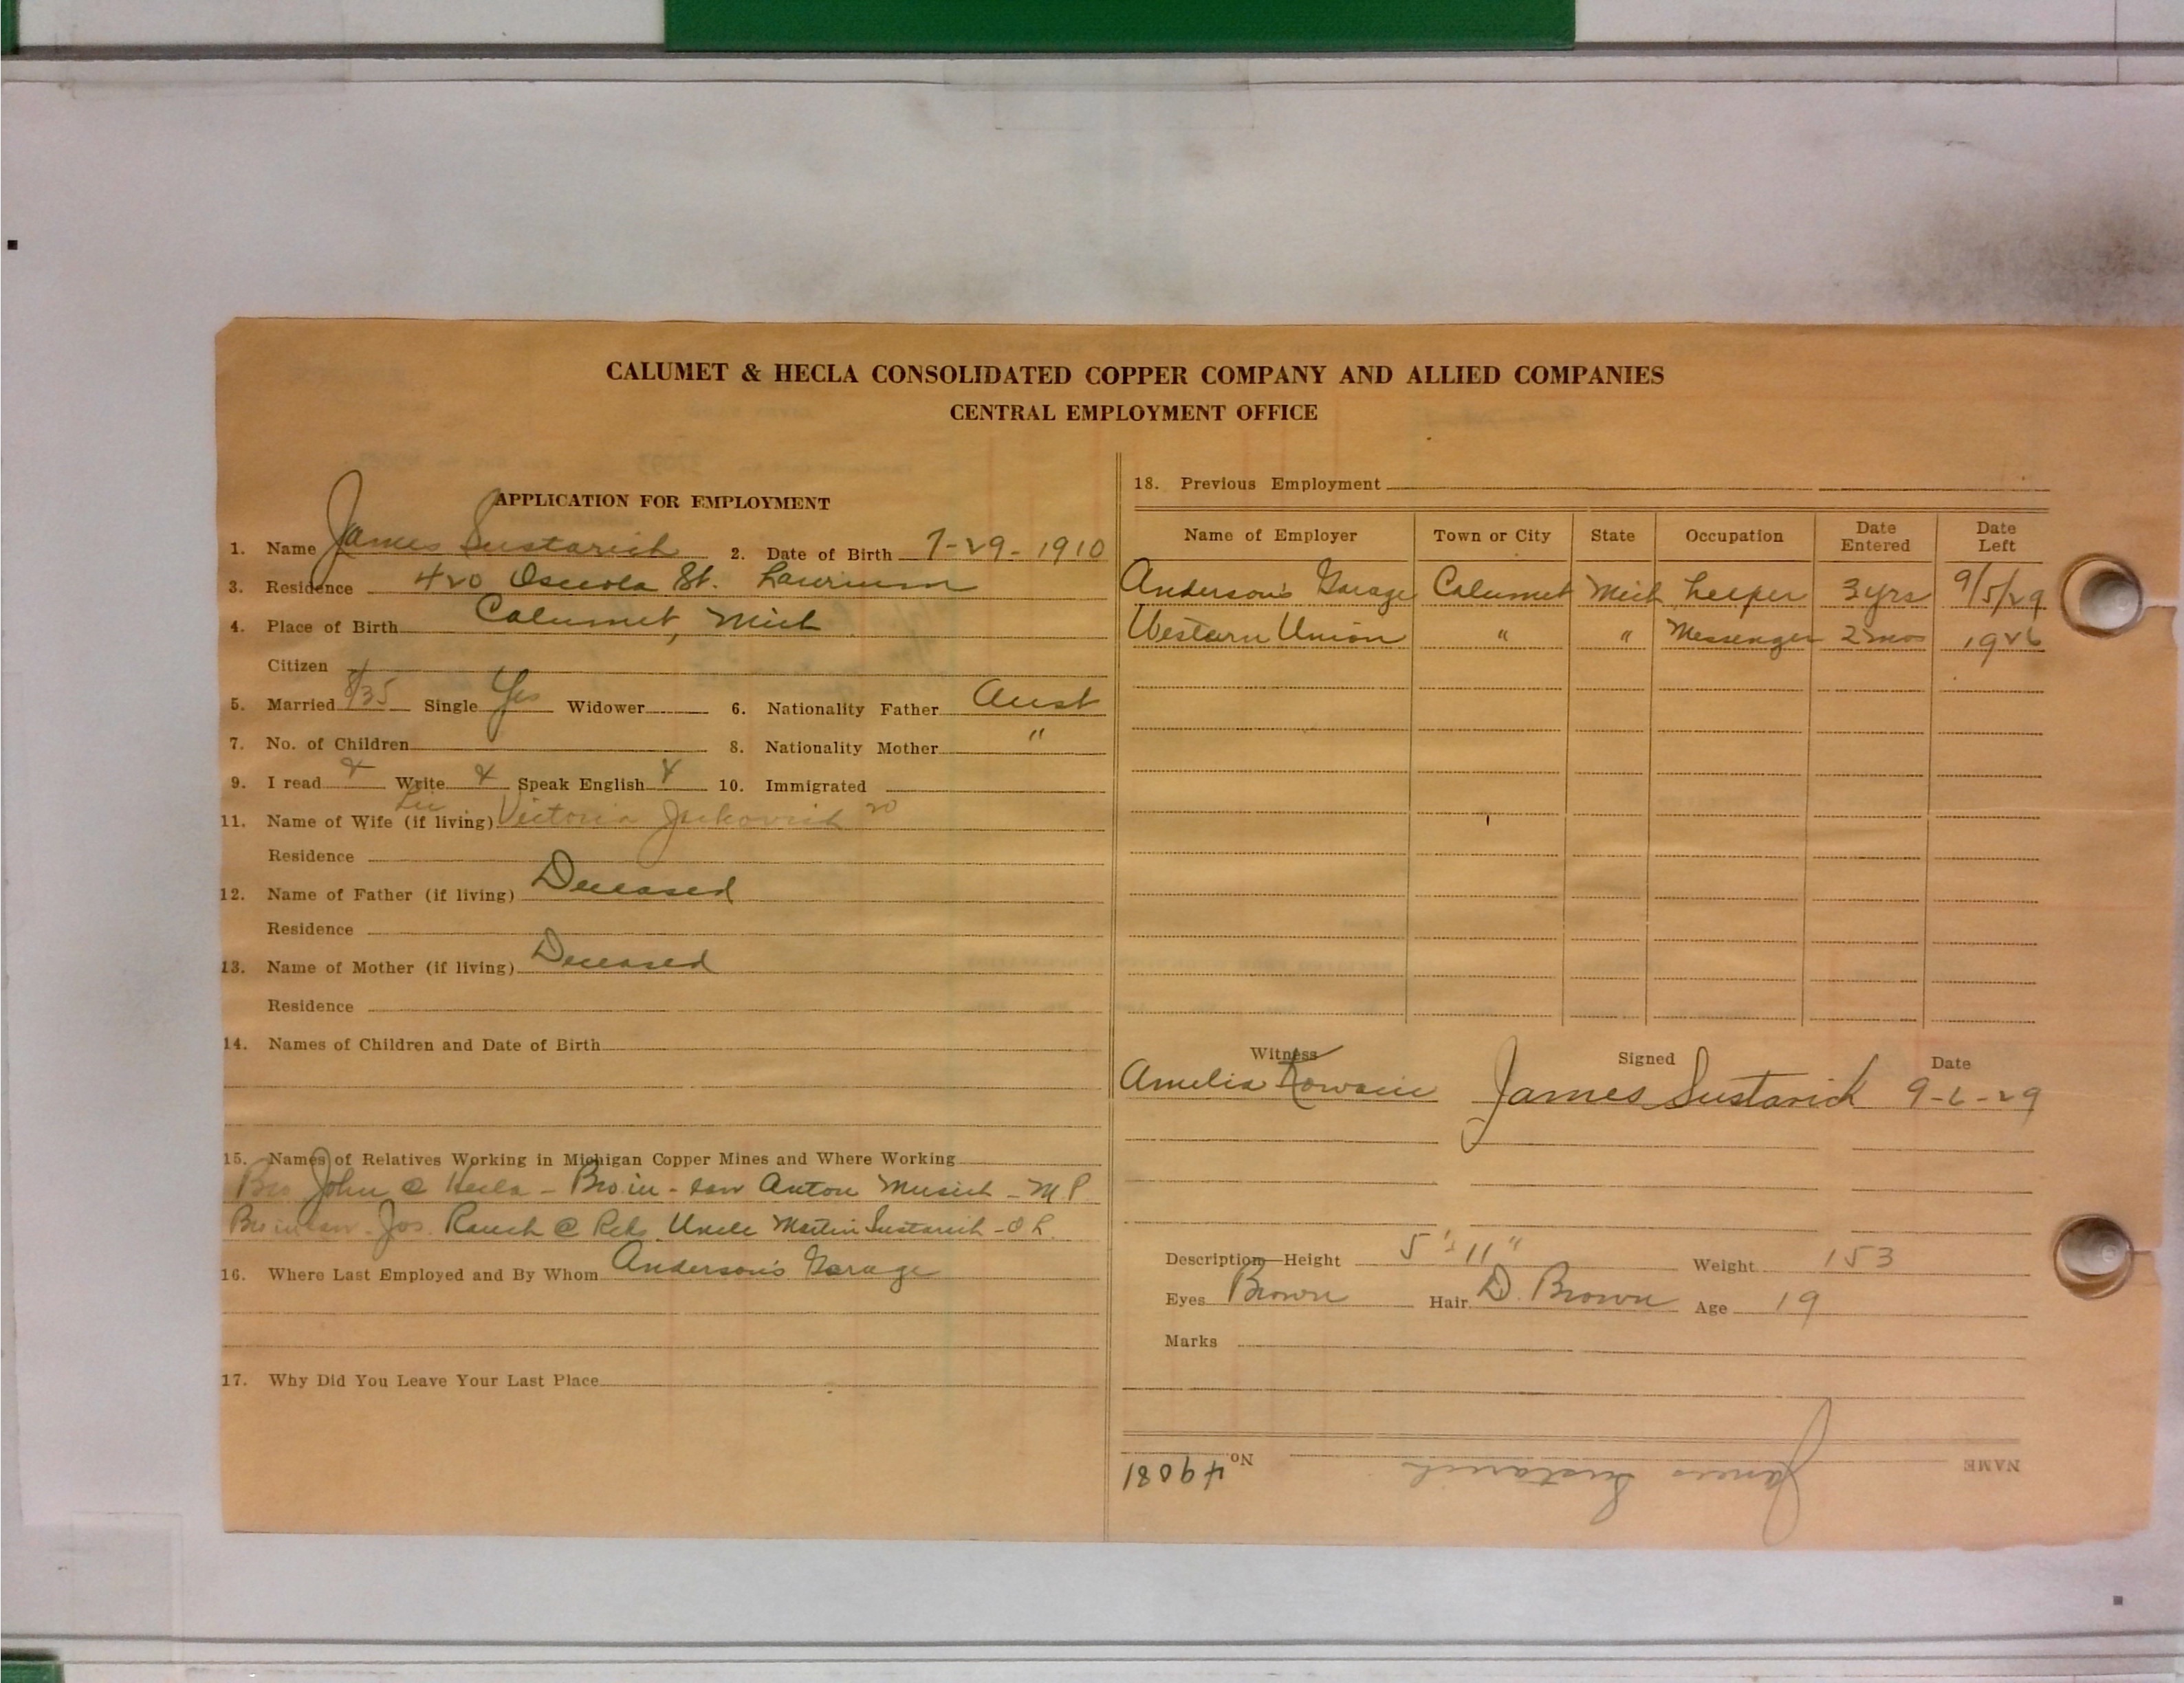 CALUMET & HECLA CONSOLIDATED COPPER COMPANY AND ALLIED COMPANIES
CENTRAL EMPLOYMENT OFFICE
APPLICATION FOR EMPLOYMENT
1. Name James Sustarich 2. Date of Birth 7-29-1910
3. Residence 420 Osceola St. Laurium
4. Place of Birth Calumet, Mich
Citizen
5. Married 8/35 Single Yes Widower 6. Nationality Father Aust
7. No. of Children 8. Nationality Mother "
9. I read Write Speak English 10. Immigrated
11. Name of Wife (if living) Victoria 20
Residence
12. Name of Father (if living) Deceased
Residence
13. Name of Mother (if living) Deceased
Residence
14. Names of Children and Date of Birth
15. Names of Relatives Working in Michigan Copper Mines and Where Working
Bro John @ Hecla - Bro in - law Anton Musich - M P
Bro in law - Jos. Rauch @ Uncle Martin Sustarich -
16. Where Last Employed and By Whom Anderson's Garage
17. Why Did You Leave Your Last Place
18. Previous Employment
Name of Employer Town or City State Occupation Date Entered Date Left
Anderson's Garage Calumet Mich helper 3 yrs 9/5/29
Western Union " " Messenger 2 mos 1926
Witness Signed Date
Amelia James Sustarich 9-6-29
Description—Height 5' 11" Weight 153
Eyes Brown Hair D. Brown Age 19
Marks
NAME James Sustarich No. 49081